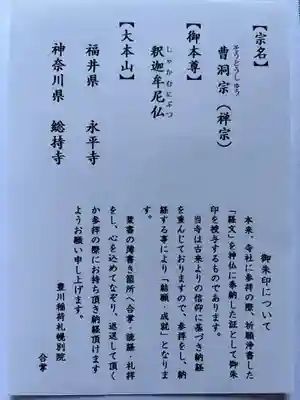 御朱印について
本来、寺社に参拝の際、祈願浄書した
「経文」を神仏に奉納した証として御朱
印を授与するものであります。
当寺は古来よりの信仰に基づき納経
を重んじておりますので、参拝をし、納
経する事により「結願・成就」となりま
す。
霊書の薄書き箇所へ合掌・読経・礼拝
をし、心を込めてなぞり、返送して頂く
か参拝の際にお持ち頂き納経頂けます
ようお願い申し上げます。
豊川稲荷札幌別院
合掌
【宗名】
そうとうしゅう
曹洞宗(禅宗)
【御本尊】
しゃかむにぶつ
釈迦牟尼仏
【大本山】
福井県 永平寺
神奈川県 総持寺